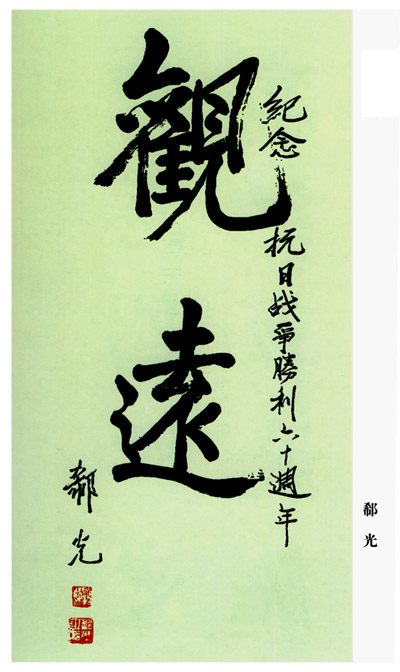 紀念
抗日战爭勝利六十週年
觀遠
郝光
郝光